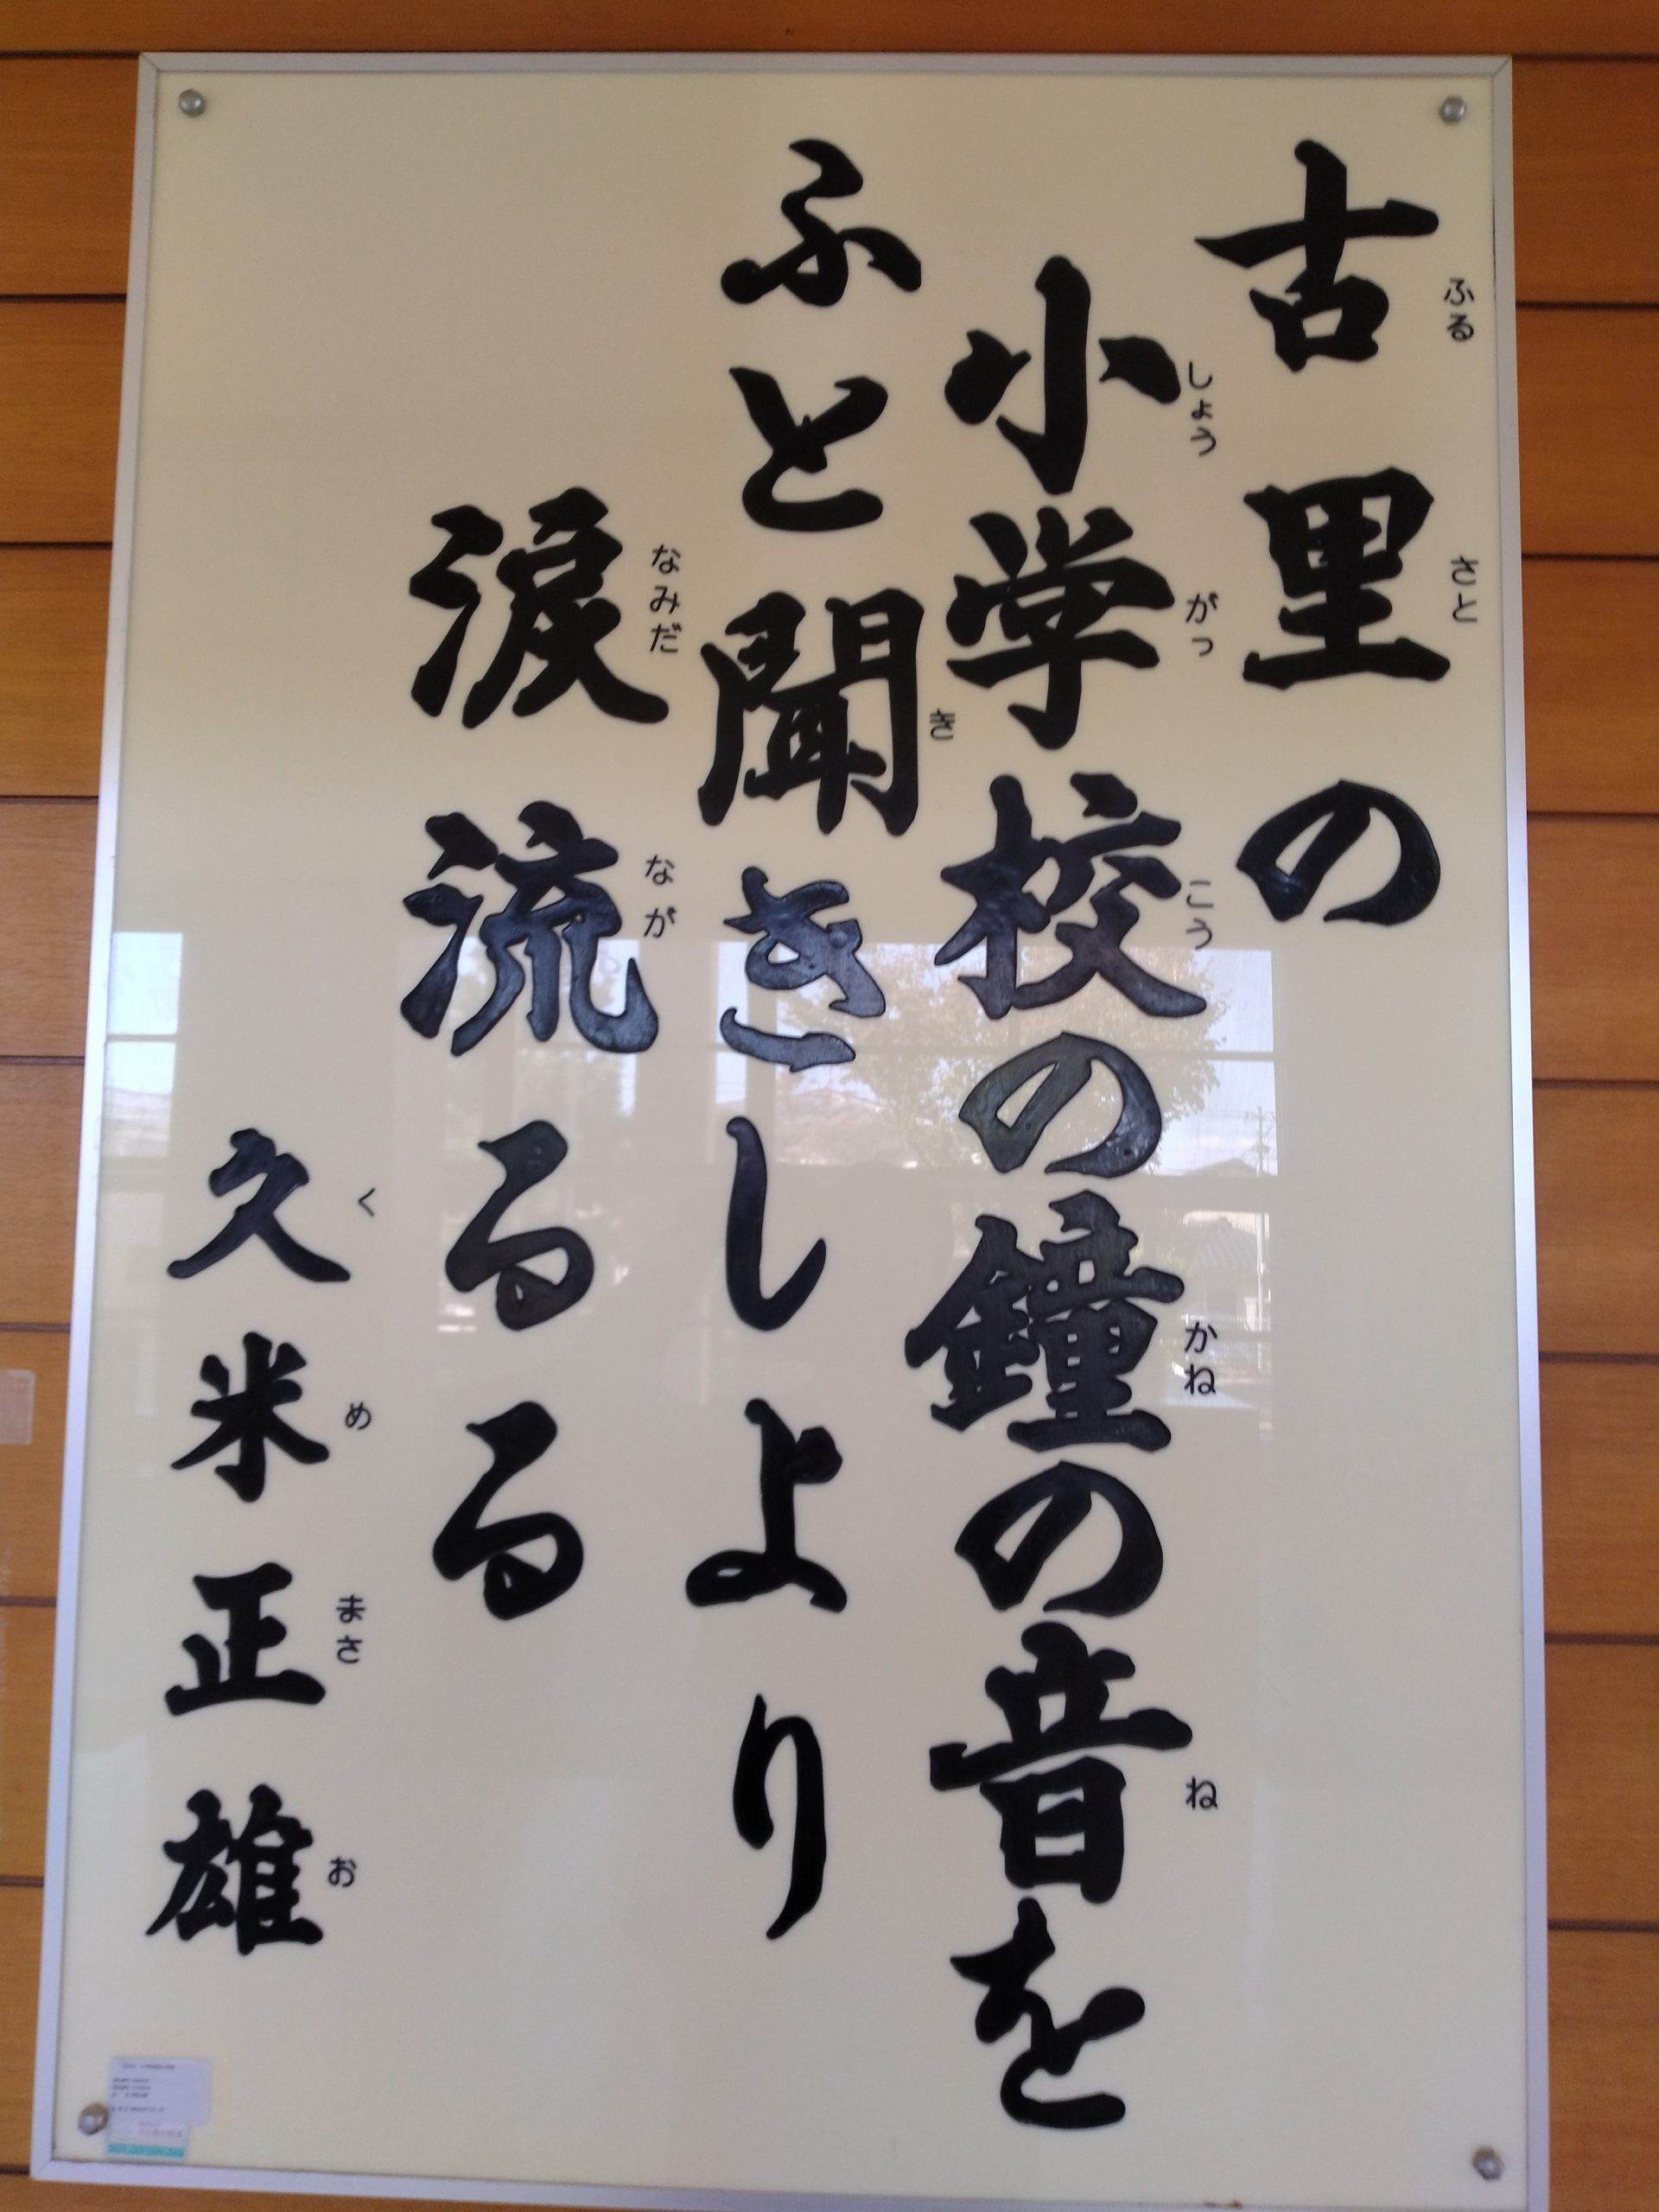 古里の
小学校の鐘の音を
ふと聞きしより
涙流るる
久米正雄
ふる
さと
しょう
がっ
こう
かね
ね
き
なみだ
なが
く
め
まさ
お